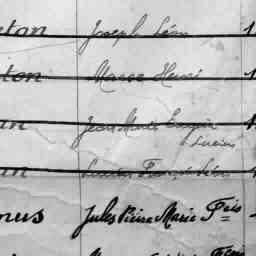 eton Joseph Léon 1
ton Marie Henri 1
an Jean Marie Eugène
Lucien
an Lucien François Léon
nus Jules Pierre Marie Fçois